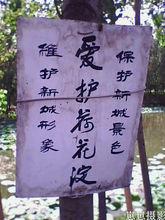 保护新城景色
爱护荷花淀
维护新城形象
摄影